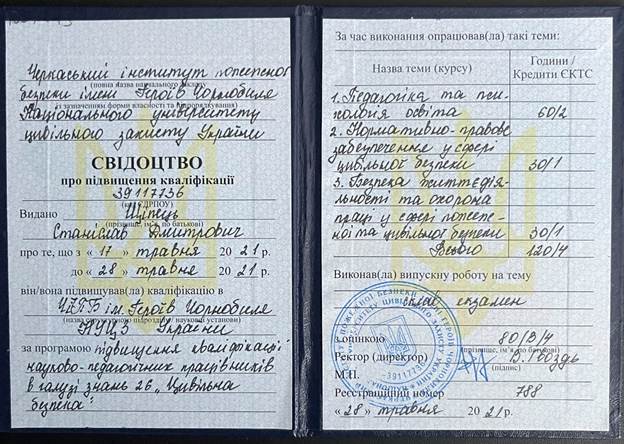 Черкаський інститут пожежної
(повна назва навчального закладу)
безпеки імені Героїв Чорнобиля
(із зазначенням форми власності та підпорядкування)
Національного університету
цивільного захисту України
СВІДОЦТВО
про підвищення кваліфікації
39117736
Видано Шупець
(прізвище, ім'я, по батькові)
Станіслав Дмитрович
про те, що з « 17 » травня 20 21 р.
до « 28 » травня 20 21 р.
він/вона підвищував(ла) кваліфікацію в
ЧІПБ ім. Героїв Чорнобиля
НУЦЗ України
за програмою підвищення кваліфікації
науково-педагогічних працівників
в галузі знань 26 „Цивільна
безпека"
За час виконання опрацював(ла) такі теми:
Назва теми (курсу)
Години /
Кредити ЄКТС
1. Педагогіка та пси-
хологія освіта 60/2
2. Нормативно-правове
забезпечення у сфері
цивільної безпеки 30/1
3. Безпека життєдія-
льності та охорона
праці у сфері пожеж-
ної та цивільної безпеки 30/1
Всього 120/4
Виконав(ла) випускну роботу на тему
екзамен
з оцінкою 80/В/4
(прізвище, ім'я, по батькові)
Ректор (директор) В. Гвоздь
М.П. (підпис)
Реєстраційний номер 788
« 28 » травня 20 21 р.